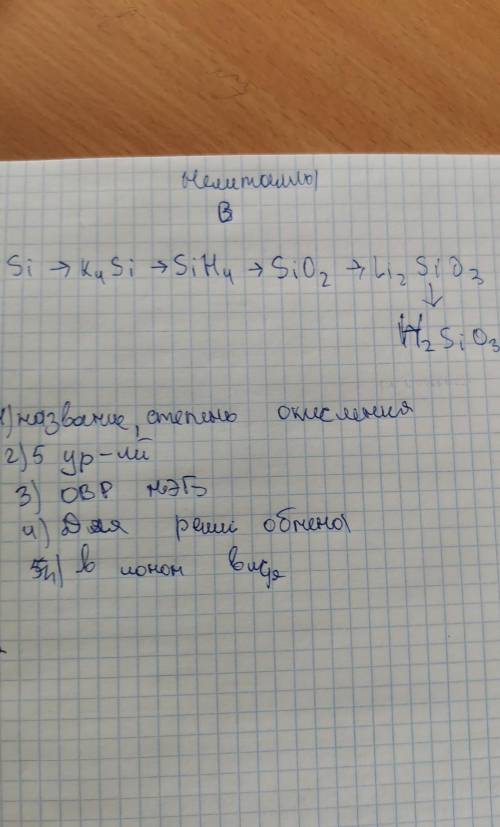 Неметаллы
В
Si → K4Si → SiH4 → SiO2 → Li2SiO3
↓
H2SiO3
1) название, степень окисления
2) 5 ур-ий
3) ОВР МЭБ
4) Для обмена
5) в ионом виде